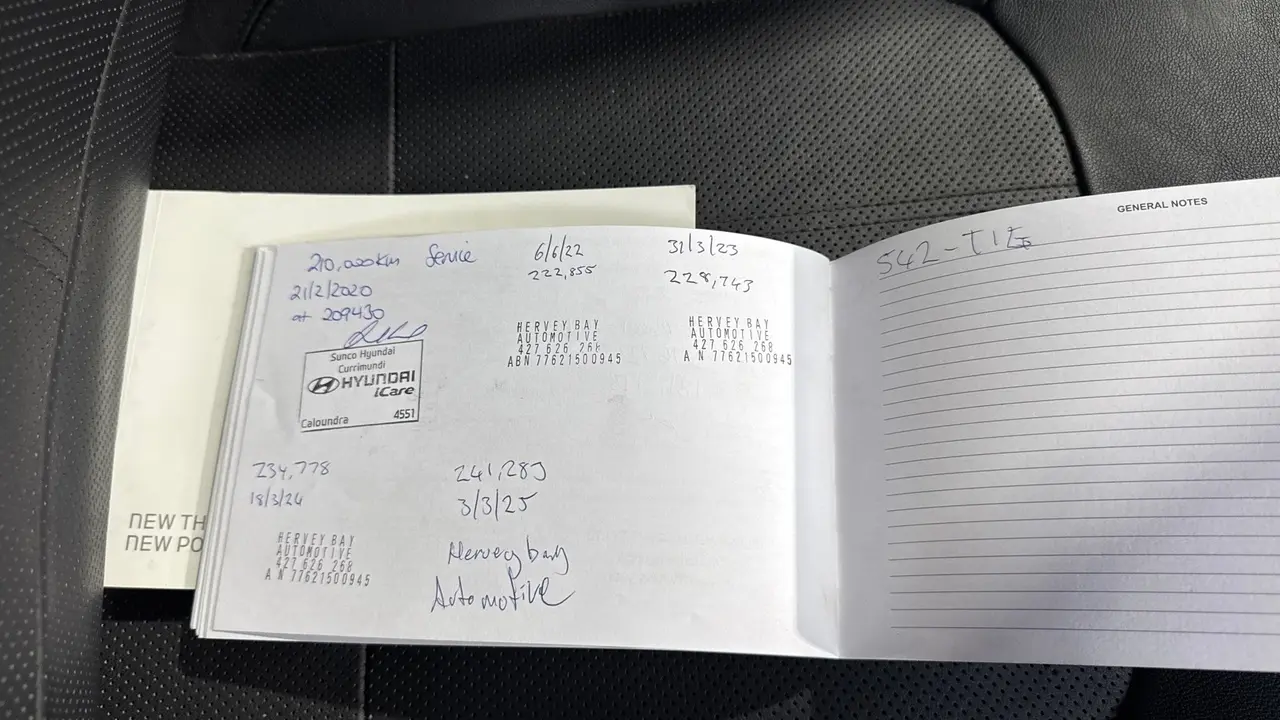 210,000km Service
21/2/2020
at 209430
Sunco Hyundai
Currimundi
HYUNDAI
iCare
Caloundra 4551
6/6/22
222,855
HERVEY BAY
AUTOMOTIVE
427 626 268
ABN 77621500945
31/3/23
228,743
HERVEY BAY
AUTOMOTIVE
427 626 268
A N 77621500945
234,778
18/3/24
HERVEY BAY
AUTOMOTIVE
427 626 268
A N 77621500945
241,285
3/3/25
Hervey bay
Automotive
NEW TH
NEW PO
GENERAL NOTES
542-